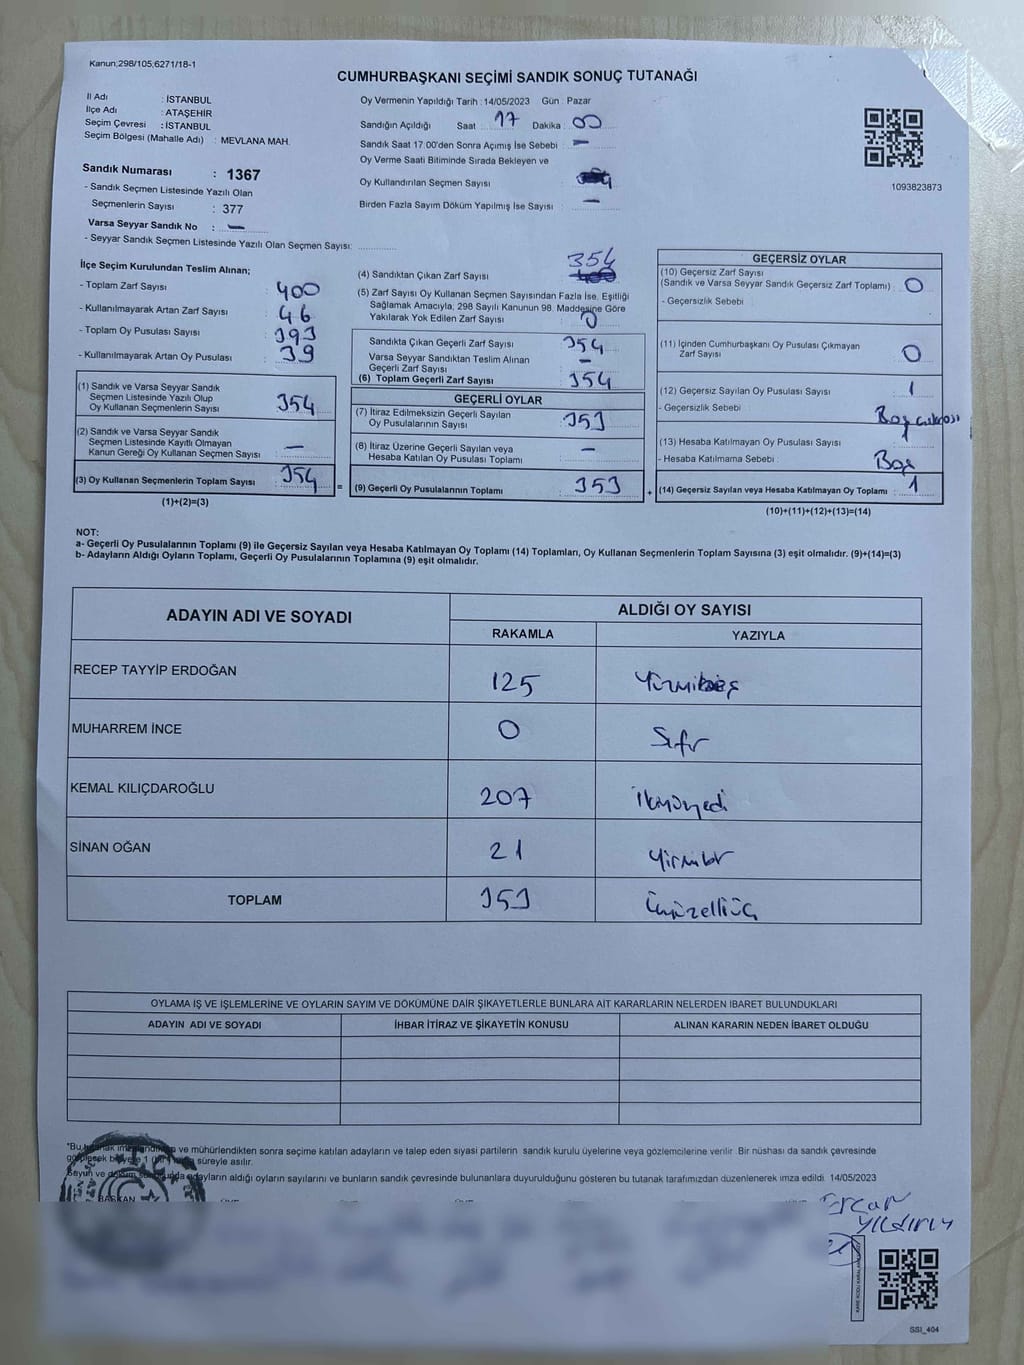 Kanun;298/105,6271/18-1
CUMHURBAŞKANI SEÇİMİ SANDIK SONUÇ TUTANAĞI
İl Adı : İSTANBUL
İlçe Adı : ATAŞEHİR
Seçim Çevresi : İSTANBUL
Seçim Bölgesi (Mahalle Adı) : MEVLANA MAH.
Sandık Numarası : 1367
- Sandık Seçmen Listesinde Yazılı Olan
Seçmenlerin Sayısı : 377
Varsa Seyyar Sandık No : —
- Seyyar Sandık Seçmen Listesinde Yazılı Olan Seçmen Sayısı:
Oy Vermenin Yapıldığı Tarih : 14/05/2023 Gün : Pazar
Sandığın Açıldığı Saat 17 Dakika 00
Sandık Saat 17.00'den Sonra Açımış İse Sebebi : —
Oy Verme Saati Bitiminde Sırada Bekleyen ve
Oy Kullandırılan Seçmen Sayısı
Birden Fazla Sayım Döküm Yapılmış İse Sayısı : —
1093823873
İlçe Seçim Kurulundan Teslim Alınan;
- Toplam Zarf Sayısı : 400
- Kullanılmayarak Artan Zarf Sayısı : 46
- Toplam Oy Pusulası Sayısı : 393
- Kullanılmayarak Artan Oy Pusulası : 39
(1) Sandık ve Varsa Seyyar Sandık
Seçmen Listesinde Yazılı Olup
Oy Kullanan Seçmenlerin Sayısı : 354
(2) Sandık ve Varsa Seyyar Sandık
Seçmen Listesinde Kayıtlı Olmayan
Kanun Gereği Oy Kullanan Seçmen Sayısı : —
(3) Oy Kullanan Seçmenlerin Toplam Sayısı : 354
=
(1)+(2)=(3)
354
(4) Sandıktan Çıkan Zarf Sayısı : 400
(5) Zarf Sayısı Oy Kullanan Seçmen Sayısından Fazla İse, Eşitliği
Sağlamak Amacıyla; 298 Sayılı Kanunun 98. Maddesine Göre
Yakılarak Yok Edilen Zarf Sayısı : 0
Sandıkta Çıkan Geçerli Zarf Sayısı : 354
Varsa Seyyar Sandıktan Teslim Alınan
Geçerli Zarf Sayısı : —
(6) Toplam Geçerli Zarf Sayısı : 354
GEÇERLİ OYLAR
(7) İtiraz Edilmeksizin Geçerli Sayılan
Oy Pusulalarının Sayısı : 353
(8) İtiraz Üzerine Geçerli Sayılan veya
Hesaba Katılan Oy Pusulası Toplamı : —
(9) Geçerli Oy Pusulalarının Toplamı : 353
+
GEÇERSİZ OYLAR
(10) Geçersiz Zarf Sayısı
(Sandık ve Varsa Seyyar Sandık Geçersiz Zarf Toplamı) : 0
- Geçersizlik Sebebi :
(11) İçinden Cumhurbaşkanı Oy Pusulası Çıkmayan
Zarf Sayısı : 0
(12) Geçersiz Sayılan Oy Pusulası Sayısı : 1
- Geçersizlik Sebebi : Boş çıkması
(13) Hesaba Katılmayan Oy Pusulası Sayısı : 1
- Hesaba Katılmama Sebebi : Boş
(14) Geçersiz Sayılan veya Hesaba Katılmayan Oy Toplamı : 1
(10)+(11)+(12)+(13)=(14)
NOT:
a- Geçerli Oy Pusulalarının Toplamı (9) ile Geçersiz Sayılan veya Hesaba Katılmayan Oy Toplamı (14) Toplamları, Oy Kullanan Seçmenlerin Toplam Sayısına (3) eşit olmalıdır. (9)+(14)=(3)
b- Adayların Aldığı Oyların Toplamı, Geçerli Oy Pusulalarının Toplamına (9) eşit olmalıdır.
ADAYIN ADI VE SOYADI
ALDIĞI OY SAYISI
RAKAMLA YAZIYLA
RECEP TAYYİP ERDOĞAN 125 Yüzyirmibeş
MUHARREM İNCE 0 Sıfır
KEMAL KILIÇDAROĞLU 207 İkiyüzyedi
SİNAN OĞAN 21 Yirmibir
TOPLAM 353 Üçyüzelliüç
OYLAMA İŞ VE İŞLEMLERİNE VE OYLARIN SAYIM VE DÖKÜMÜNE DAİR ŞİKAYETLERLE BUNLARA AİT KARARLARIN NELERDEN İBARET BULUNDUKLARI
ADAYIN ADI VE SOYADI İHBAR İTİRAZ VE ŞİKAYETİN KONUSU ALINAN KARARIN NEDEN İBARET OLDUĞU
*Bu tutanak imzalandıktan ve mühürlendikten sonra seçime katılan adayların ve talep eden siyasi partilerin sandık kurulu üyelerine veya gözlemcilerine verilir. Bir nüshası da sandık çevresinde
görülecek bir yere 1 hafta süreyle asılır.
Sayım ve döküm sonucunda adayların aldığı oyların sayılarını ve bunların sandık çevresinde bulunanlara duyurulduğunu gösteren bu tutanak tarafımızdan düzenlenerek imza edildi. 14/05/2023
BAŞKAN
Ercan
YILDIRIM
SSI_404